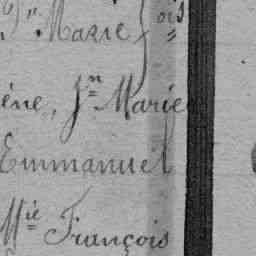 Marie
ois
ène, Jn Marie
Emmanuel
Mie François